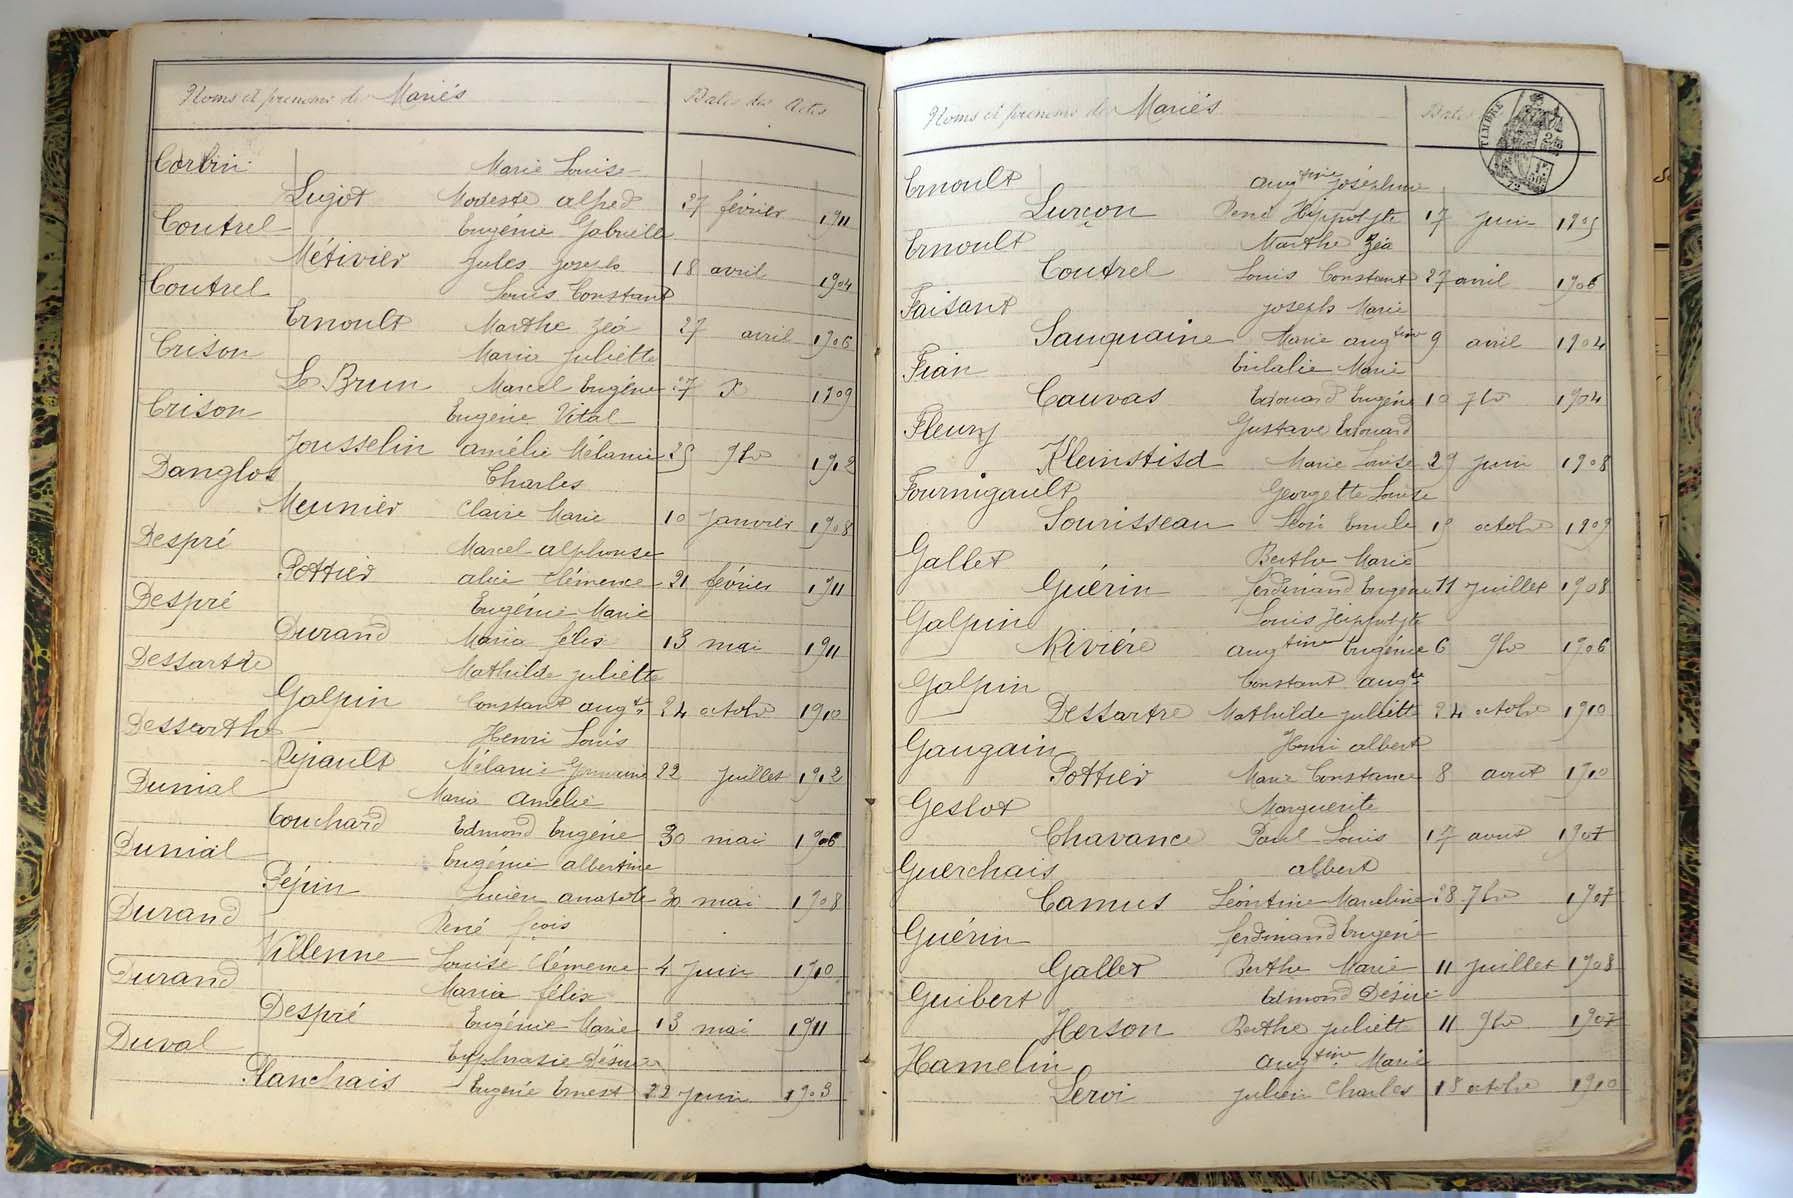 Noms et prénoms des Mariés Dates des Actes
Corbin Marie Louise
Lugot Modeste alfred 27 février 1911
Coutrel Eugénie Gabrielle
Métivier Jules Joseph 18 avril 1904
Coutrel Louis Constant
Ernoult Marthe Zéa 27 avril 1906
Crison Maria Juliette
Le Brun Marcel Eugène 27 Xe 1909
Crison Eugène Vital
Jousselin Amélie Mélanie 25 9bre 1912
Danglos Charles
Meunier Claire Marie 10 Janvier 1908
Despré Marcel alphonse
Pottier alice Clémence 21 février 1911
Despré Eugénie Marie
Durand Maria félix 13 mai 1911
Dessartre Mathilde Juliette
Galpin Constant augte 24 octobre 1910
Dessarthe Henri Louis
Mélanie Germaine 22 Juillet 1912
Dunial Maria Amélie
Couchard Edmond Eugène 30 mai 1906
Dunial Eugénie albertine
Pépin Lucien anatole 30 mai 1908
Durand René fçois
Villenne Louise Clémence 4 Juin 1910
Durand Maria félix
Despré Eugénie Marie 13 mai 1911
Duval Euphrasie Désirée
Planchais Eugène Ernest 22 Juin 1903
Noms et prénoms des Mariés Dates
TIMBRE
Ernoult Augtine Joséphine
Lurçon René Hippolyte 17 Juin 1905
Ernoult Marthe Zéa
Coutrel Louis Constant 27 avril 1906
Faisant Joseph Marie
Sauquaine Marie augtine 9 avril 1904
Fian Eulalie Marie
Cauvas Edouard Eugène 10 7bre 1904
Fleury Gustave Edouard
Marie Louise 29 Juin 1908
Fournigault Georgette Louise
Sourisseau Léon Emile 19 octobre 1909
Gallet Berthe Marie
Guérin ferdinand Eugène 11 Juillet 1908
Galpin Louis Hippolyte
Rivière augtine Eugénie 6 9bre 1906
Galpin Constant augte
Dessartre Mathilde Juliette 24 octobre 1910
Gaugain Henri albert
Pottier Marie Constance 8 avril 1910
Geslot Marguerite
Chavance Paul Louis 17 avril 1907
Guerchais albert
Camus Léontine Marceline 28 7bre 1907
Guérin ferdinand Eugène
Gallet Berthe Marie 11 Juillet 1908
Guibert Edmond Désiré
Herson Berthe Juliette 11 9bre 1907
Hamelin Augtine Marie
Leroi Julien Charles 18 octobre 1910